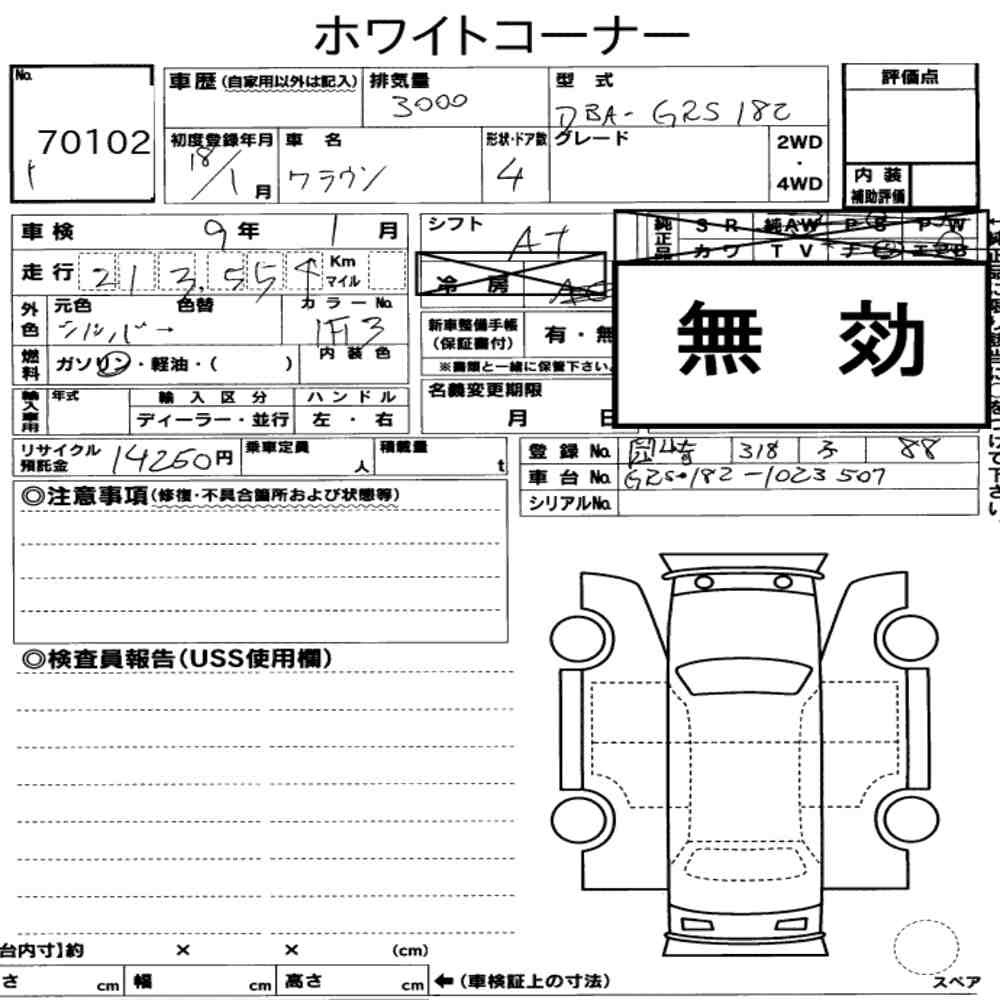 ホワイトコーナー
No.
70102
車歴(自家用以外は記入)
排気量
3000
型 式
DBA-GRS182
評価点
初度登録年月
18/1月
車 名
クラウン
形状・ドア数
4
グレード
2WD
・
4WD
内 装
補助評価
車検 9年 1月
シフト
AT
純正品
S R 純AW P S P W
カワ TV ナビ エアB
走行 213,554 Km
マイル
冷 房
無 効
外色
元色
色替
カラーNo.
シルバー
1F3
新車整備手帳
(保証書付)
有・無
燃料
ガソリン・軽油・( )
内装色
※書類と一緒に保管下さい。
輸入車用
年式
輸入区分
ハンドル
ディーラー・並行
左 ・ 右
名義変更期限
月 日
リサイクル
預託金
14260円
乗車定員
人
積載量
t
登録 No.
318
88
車台 No. GRS182-1023507
シリアルNo.
◎注意事項(修復・不具合箇所および状態等)
◎検査員報告(USS使用欄)
台内寸】約 × × (cm)
さ cm 幅 cm 高さ cm ←(車検証上の寸法)
スペア